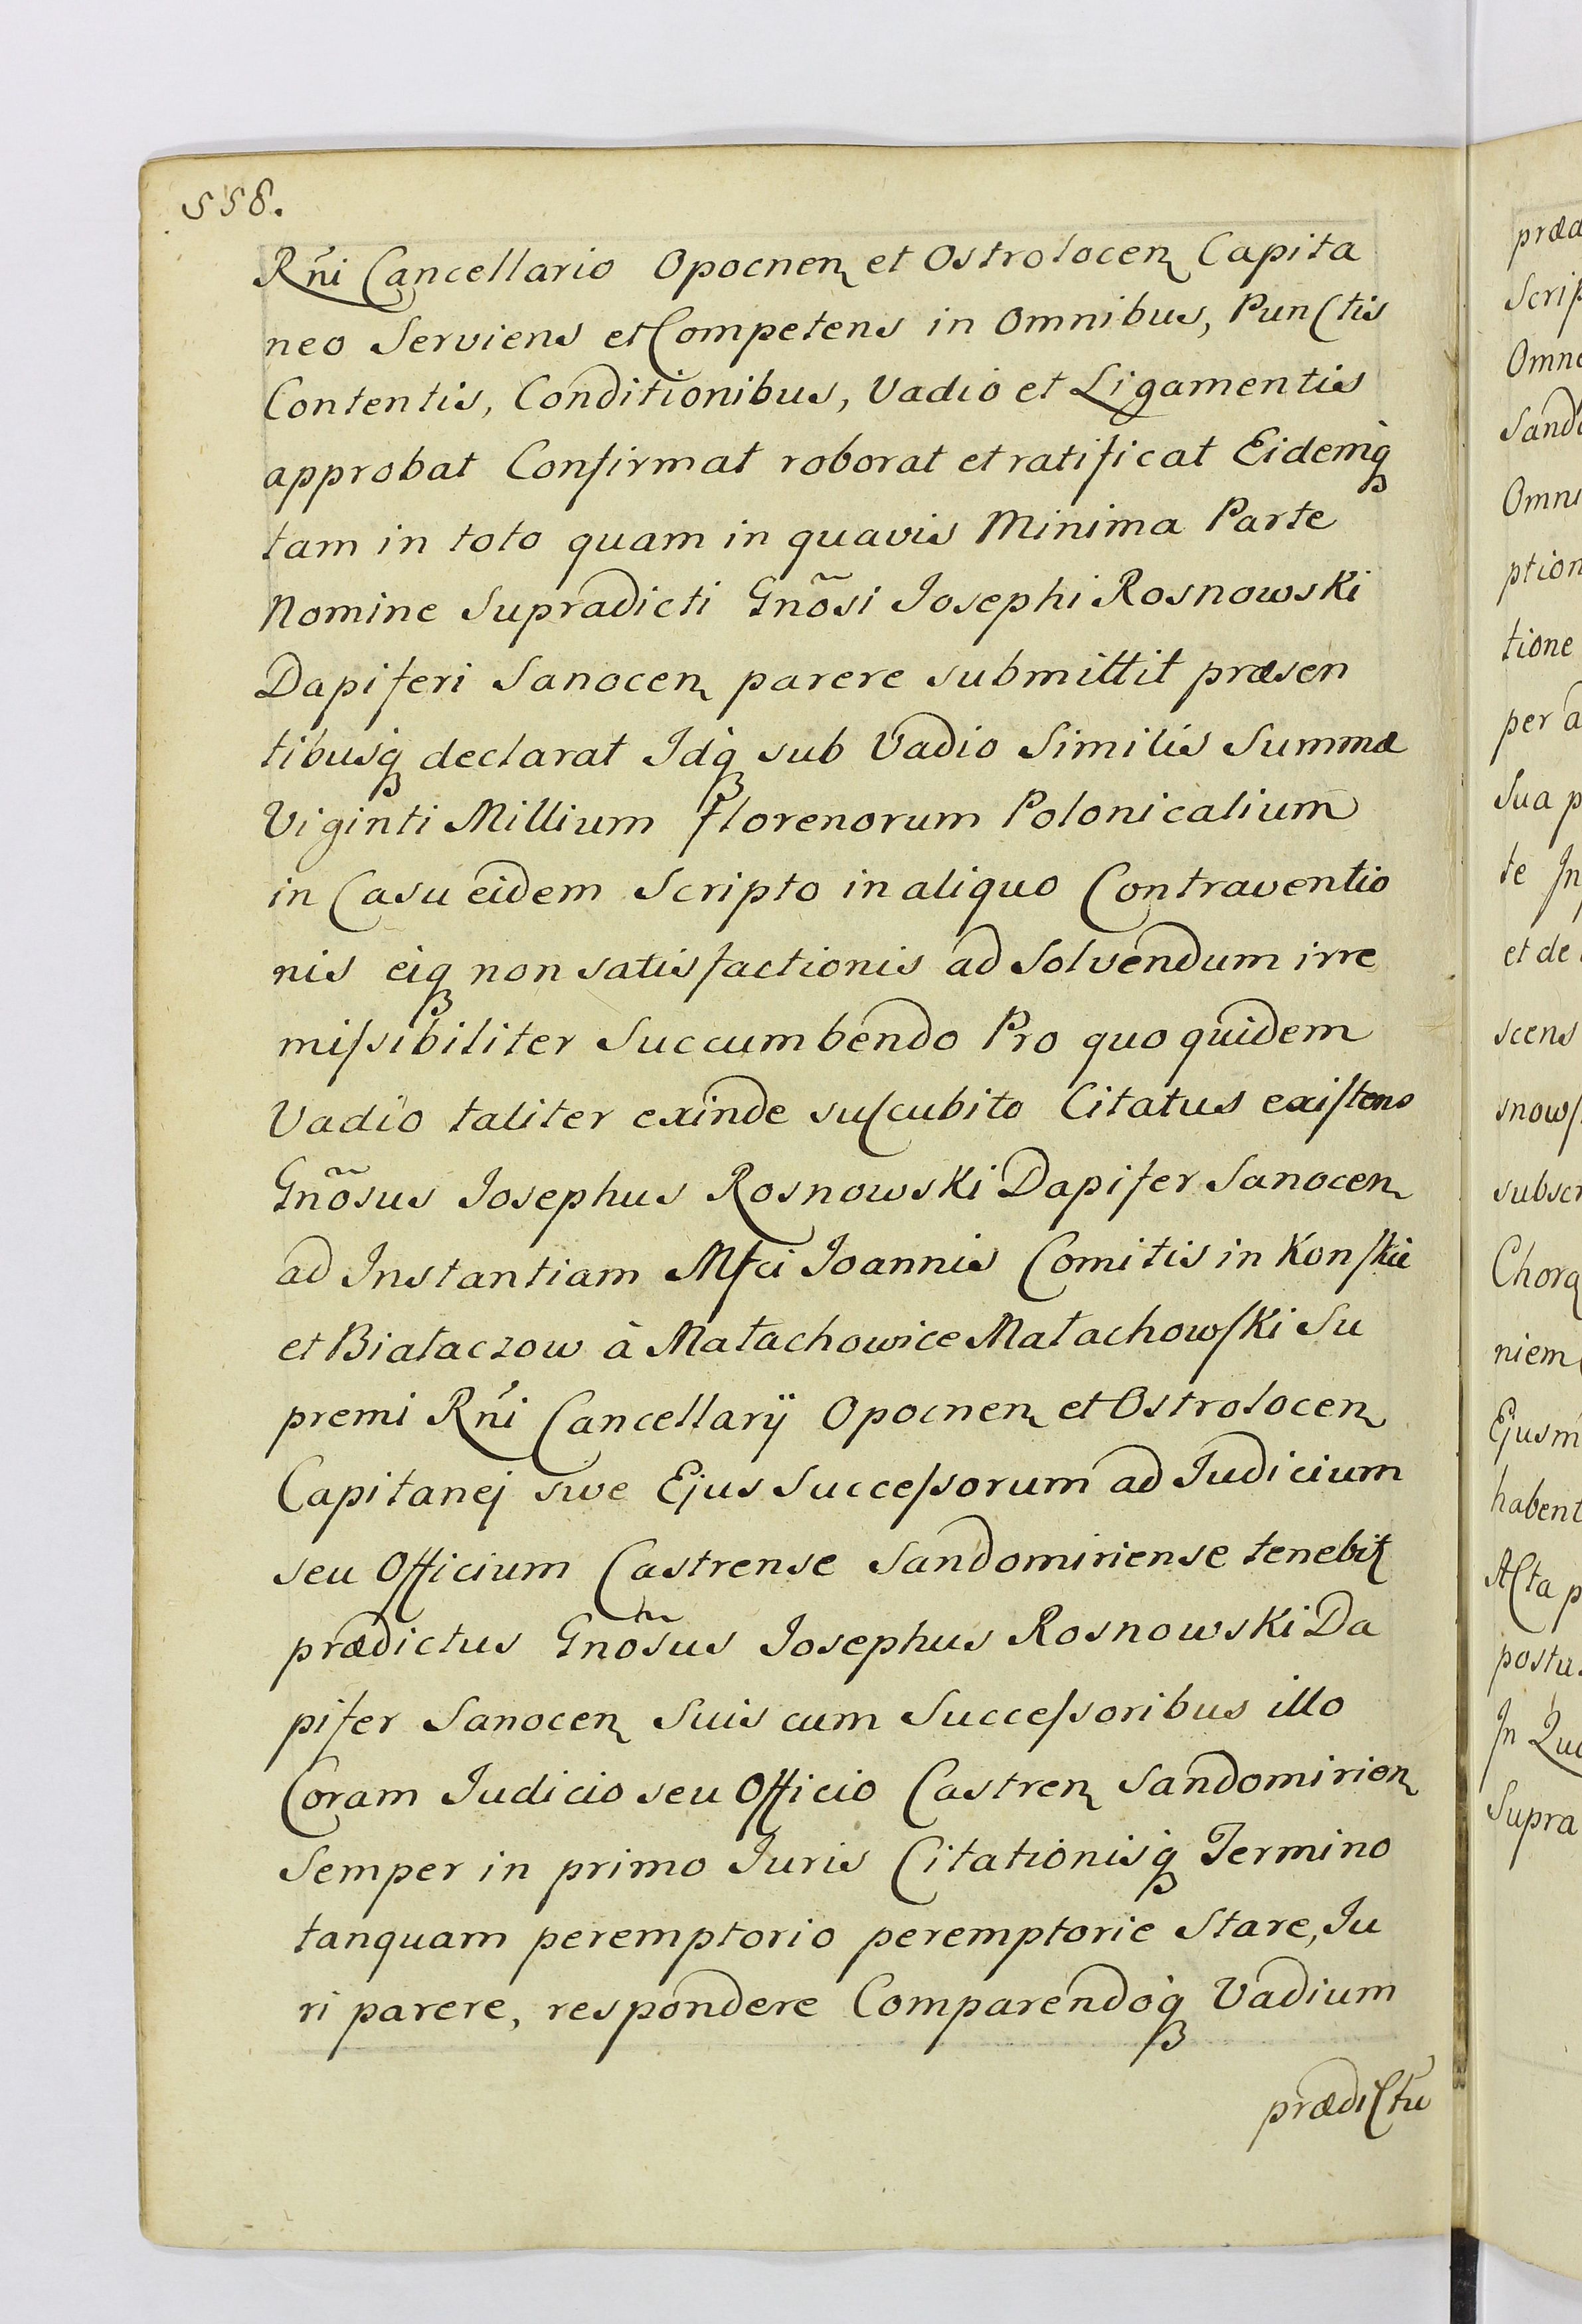 558.
Rñi Cancellario Opocnen et Ostrolocen Capita
neo Serviens et Competens in Omnibus, Punctis
Contentis, Conditionibus, Vadio et Ligamentis
approbat Confirmat roborat et ratificat Eidemq
tam in toto quam in quavis Minima Parte
Nomine Supradicti Gnõsi Iosephi Rosnowski
Dapiferi Sanocen parere submittit præsen
tibusq declarat Idq sub Vadio Similis Summæ
Viginti Millium florenorum Polonicalium
in Casu eidem Scripto in aliquo Contraventio
nis eiq non satisfactionis ad Solvendum irre
miſsibiliter Succumbendo Pro quo quidem
Vadio taliter exinde suſcubito Citatus exiſtens
Gnõsus Iosephus Rosnowski Dapifer Sanocen
ad Instantiam Mfci Ioannis Comitis in Konſkie
et Białaczow à Małachowice Małachowſki Su
premi Rñi Cancellarÿ Opocnen et Ostrolocen
Capitanej sive Ejus Succeſsorum ad Iudicium
seu Officium Castrense Sandomiriense tenebit
prædictus Gnõsus Iosephus Rosnowski Da
pifer Sanocen Suis cum Succeſsoribus illo
Coram Iudicio seu Officio Castren Sandomirien
Semper in primo Iuris Citationisq Termino
tanquam peremptorio peremptorie Stare, Iu
ri parere, respondere Comparendoq Vadium
prædictū
præd
Scrip
Omn
Sand
Omni
ption
tione
per a
Sua p
te In
et de
scens
snowſ
subscr
Chorą
niem
Ejusm
habent
Acta p
postu
In Qu
Supra